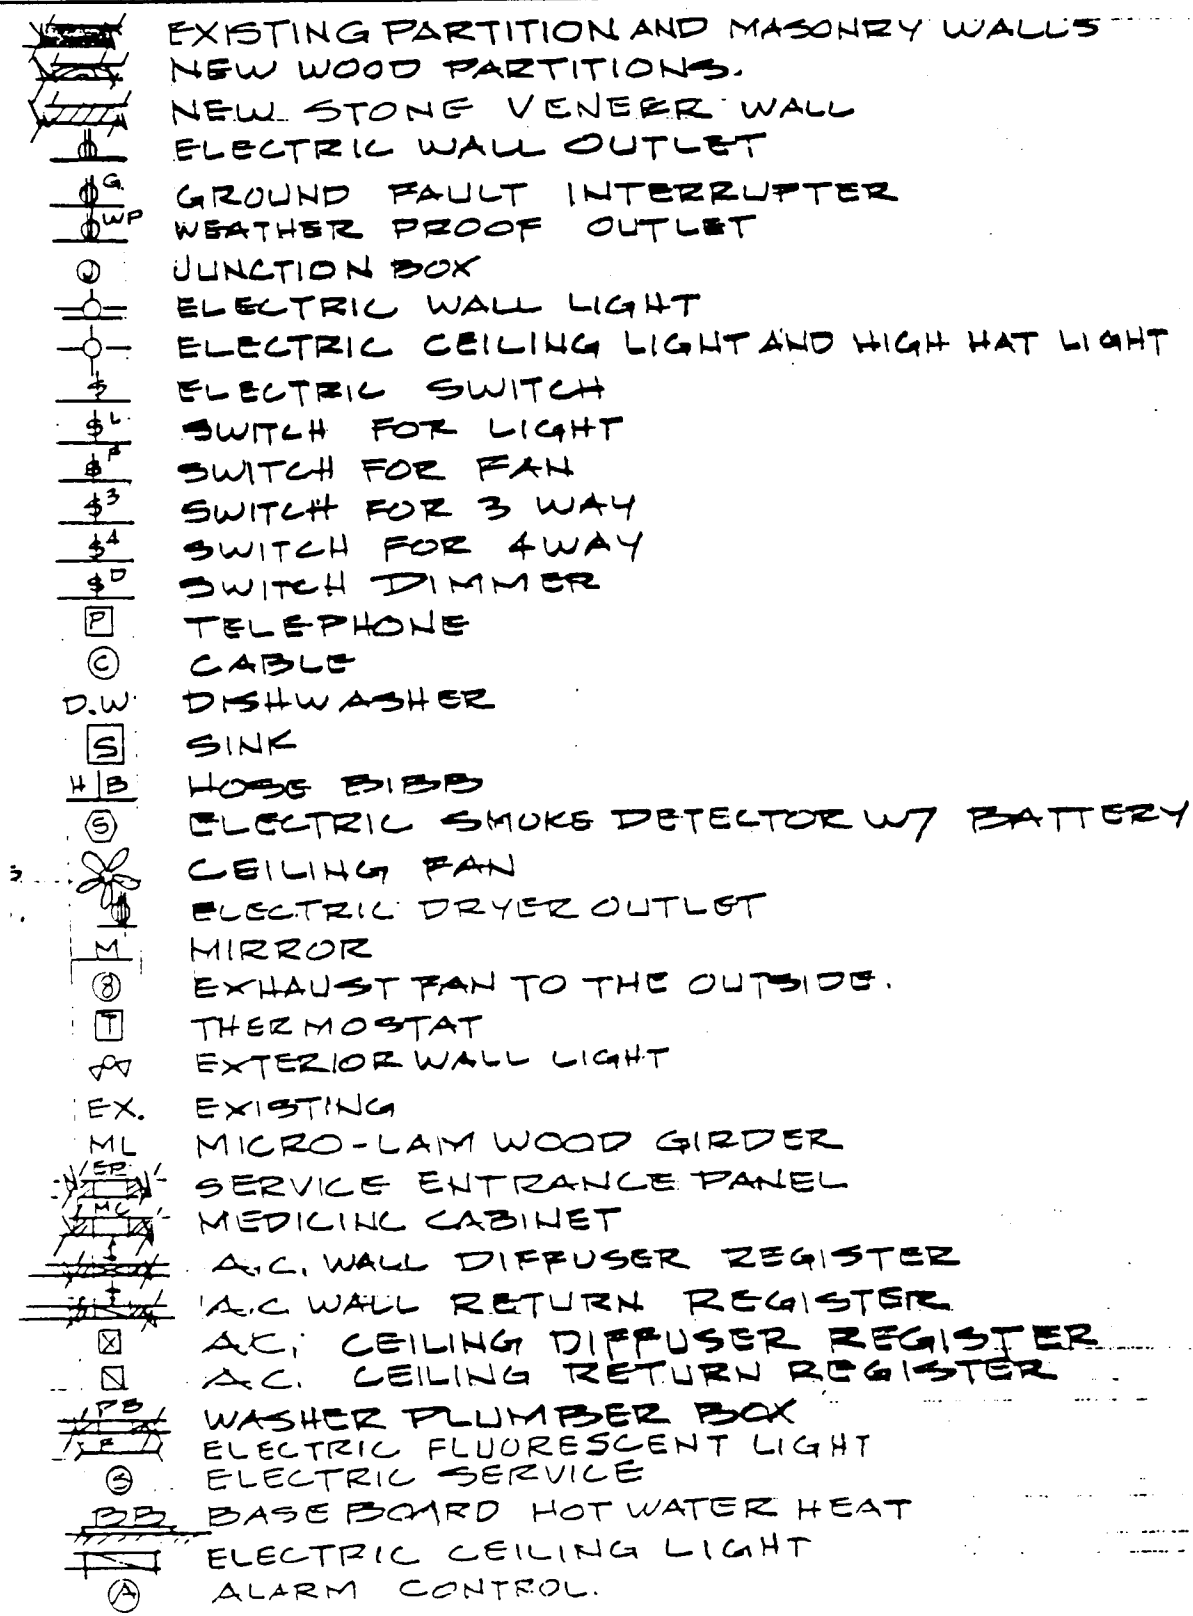 EXISTING PARTITION AND MASONRY WALLS
NEW WOOD PARTITIONS.
NEW STONE VENEER WALL
ELECTRIC WALL OUTLET
G. GROUND FAULT INTERRUPTER
WP WEATHER PROOF OUTLET
J JUNCTION BOX
ELECTRIC WALL LIGHT
ELECTRIC CEILING LIGHT AND HIGH HAT LIGHT
$ ELECTRIC SWITCH
$L SWITCH FOR LIGHT
$F SWITCH FOR FAN
$3 SWITCH FOR 3 WAY
$4 SWITCH FOR 4WAY
$D SWITCH DIMMER
P TELEPHONE
C CABLE
D.W. DISHWASHER
S SINK
H B HOSE BIBB
S ELECTRIC SMOKE DETECTOR W/ BATTERY
CEILING FAN
ELECTRIC DRYER OUTLET
M MIRROR
8 EXHAUST FAN TO THE OUTSIDE.
T THERMOSTAT
EXTERIOR WALL LIGHT
EX. EXISTING
ML MICRO-LAM WOOD GIRDER
SERVICE ENTRANCE PANEL
MC MEDICINC CABINET
A.C. WALL DIFFUSER REGISTER
A.C WALL RETURN REGISTER
A.C. CEILING DIFFUSER REGISTER
A.C. CEILING RETURN REGISTER
PB WASHER PLUMBER BOX
F ELECTRIC FLUORESCENT LIGHT
ELECTRIC SERVICE
BB BASE BOARD HOT WATER HEAT
ELECTRIC CEILING LIGHT
A ALARM CONTROL.